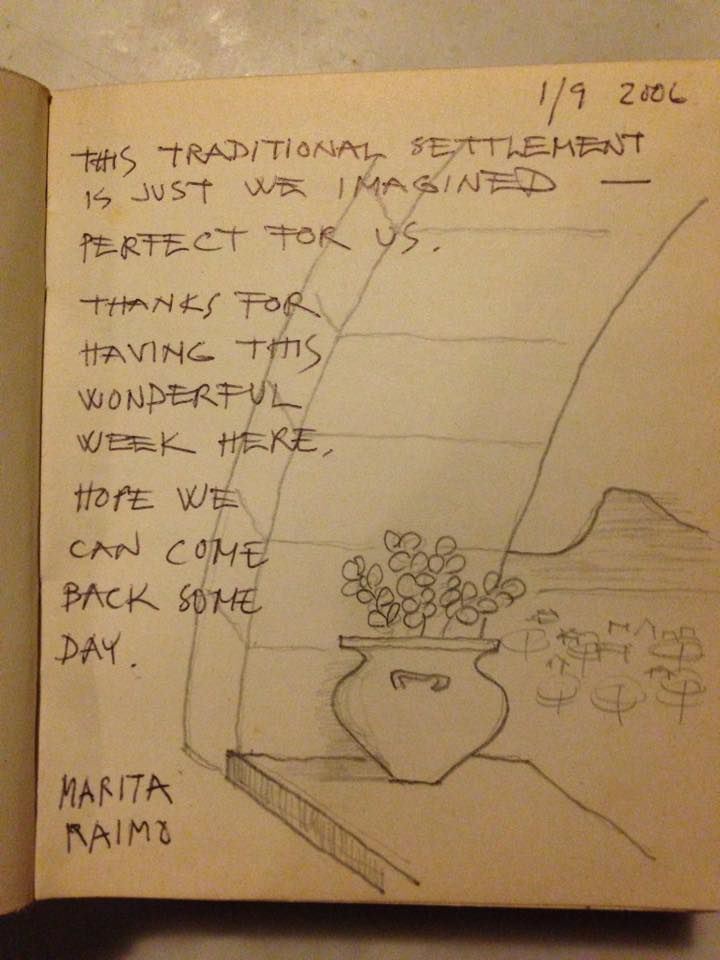 1/9 2006
THIS TRADITIONAL SETTLEMENT
IS JUST WE IMAGINED —
PERFECT FOR US.
THANKS FOR
HAVING THIS
WONDERFUL
WEEK HERE,
HOPE WE
CAN COME
BACK SOME
DAY.
MARITA
RAIMO